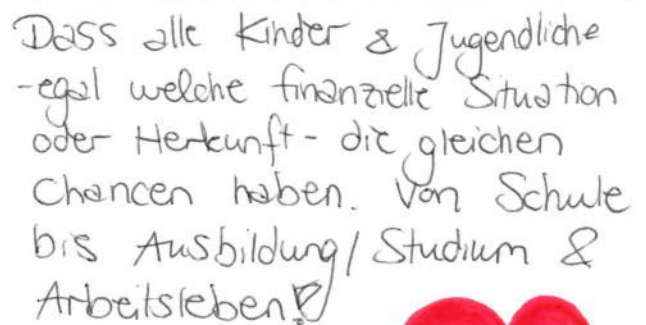 Dass alle Kinder & Jugendliche
-egal welche finanzielle Situation
oder Herkunft- die gleichen
Chancen haben. Von Schule
bis Ausbildung/Studium &
Arbeitsleben!